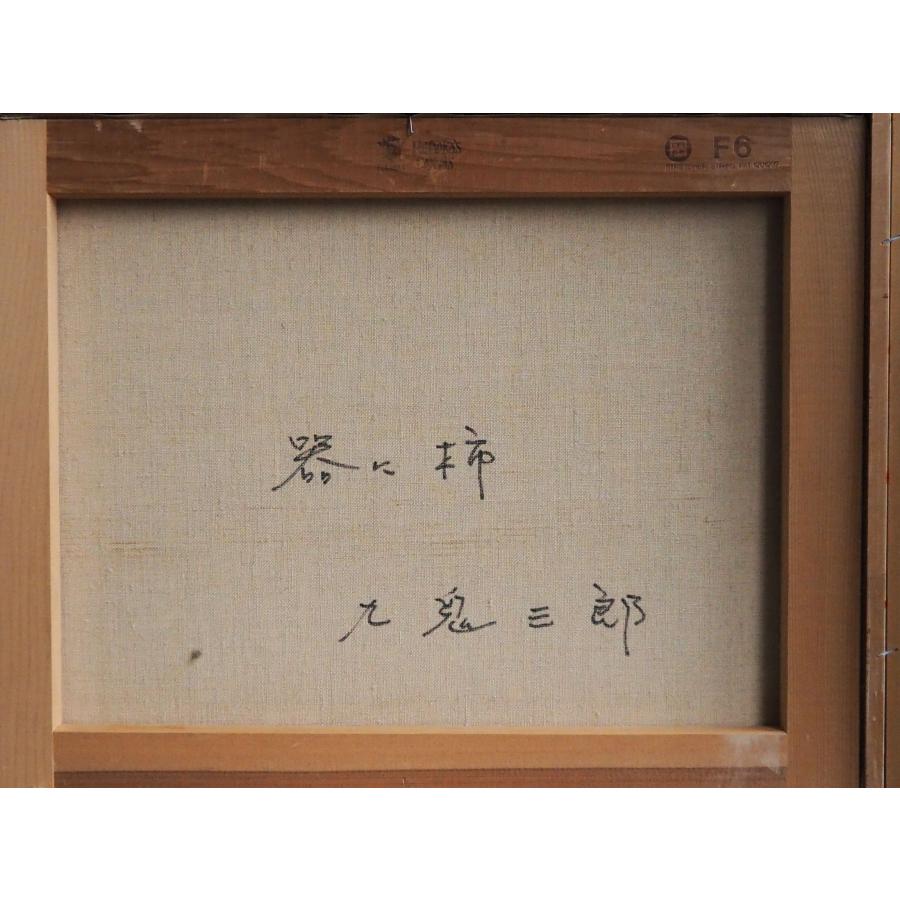 F6
器に 柿
九鬼三郎